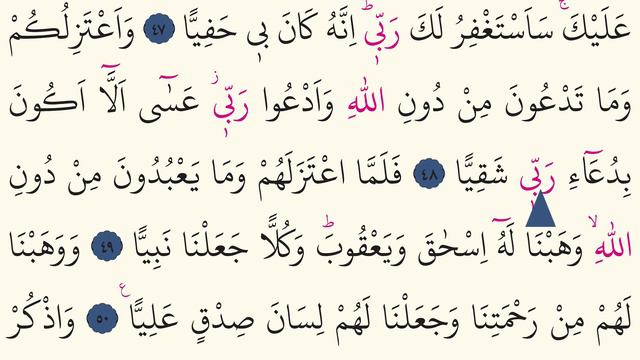 عَلَيْكَۚ سَاَسْتَغْفِرُ لَكَ رَبّ۪يۜ اِنَّهُ كَانَ ب۪ي حَفِيًّا ﴿٤٧﴾ وَاَعْتَزِلُكُمْ
وَمَا تَدْعُونَ مِنْ دُونِ اللّٰهِ وَاَدْعُوا رَبّ۪يۘ عَسٰٓى اَلَّٓا اَكُونَ
بِدُعَٓاءِ رَبّ۪ي شَقِيًّا ﴿٤٨﴾ فَلَمَّا اعْتَزَلَهُمْ وَمَا يَعْبُدُونَ مِنْ دُونِ
اللّٰهِۙ وَهَبْنَا لَهُٓ اِسْحٰقَ وَيَعْقُوبَۜ وَكُلًّا جَعَلْنَا نَبِيًّا ﴿٤٩﴾ وَوَهَبْنَا
لَهُمْ مِنْ رَحْمَتِنَا وَجَعَلْنَا لَهُمْ لِسَانَ صِدْقٍ عَلِيًّا ع ﴿٥٠﴾ وَاذْكُرْ